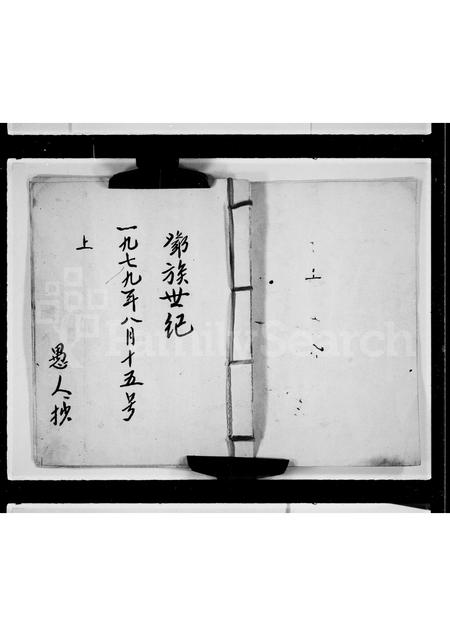 鄧族世纪
一九七九年八月十五号
上
愚人抄
FamilySearch